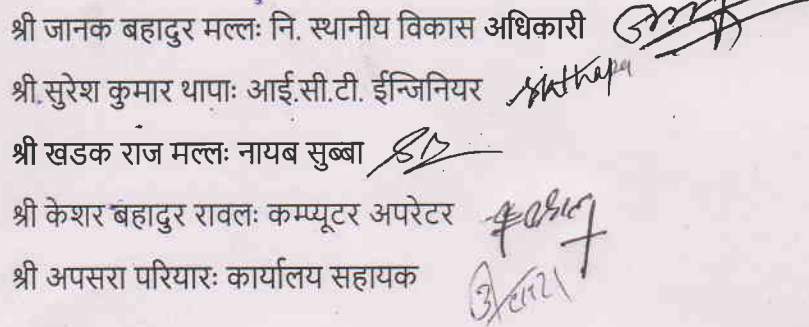 श्री जानक बहादुर मल्लः नि. स्थानीय विकास अधिकारी
श्री सुरेश कुमार थापाः आई.सी.टी. ईन्जिनियर
श्री खडक राज मल्लः नायब सुब्बा
श्री केशर बहादुर रावलः कम्प्यूटर अपरेटर
श्री अपसरा परियारः कार्यालय सहायक